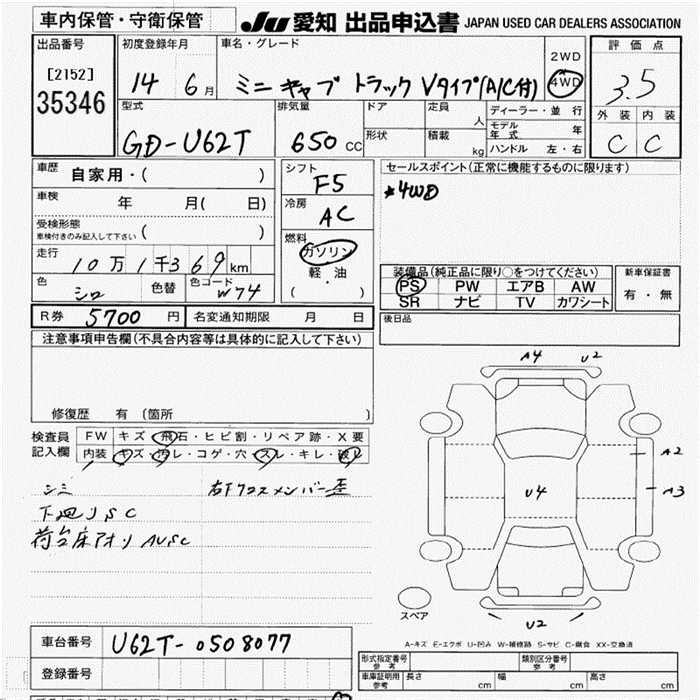 車内保管・守衛保管 JU 愛知 出品申込書 JAPAN USED CAR DEALERS ASSOCIATION
出品番号
[2152]
35346
初度登録年月
14 6月
車名・グレード
ミニキャブ トラック Vタイプ(A/C付)
2WD
4WD
評価点
3.5
外装 内装
C C
型式
GD-U62T
排気量
650 CC
ドア
形状
定員 人
積載 kg
ディーラー・並行
モデル年式 年
ハンドル 左・右
車歴
自家用・( )
車検
年 月( 日)
受検形態
車検付きのみ記入して下さい ( )
走行
10万1千369km
色
シロ
色替
色コード
W74
シフト
F5
冷房
AC
燃料
ガソリン
軽・油
( )
セールスポイント(正常に機能するものに限ります)
★4WD
装備品(純正品に限り○をつけてください)
PS PW エアB AW
SR ナビ TV カワシート
新車保証書
有・無
R券 5700円
名変通知期限 月 日
後日品
注意事項申告欄(不具合内容等は具体的に記入して下さい)
修復歴 有 〔箇所 〕
検査員
記入欄
FW キズ・飛石・ヒビ割・リペア跡・X要
内装 キズ・汚レ・コゲ・穴・スレ・キレ・破レ
シミ
右下クロスメンバー歪
下廻りSC
荷台床アオリAUSC
A4 U2
A2
A3
U4
スペア
U2
A-キズ E-エクボ U-凹み W-補修跡 S-サビ C-腐食 XX-交換済
車台番号 U62T-0508077
登録番号
形式指定番号
参考
類別区分番号
参考
車庫証明用
参考
長さ cm 幅 cm 高さ cm